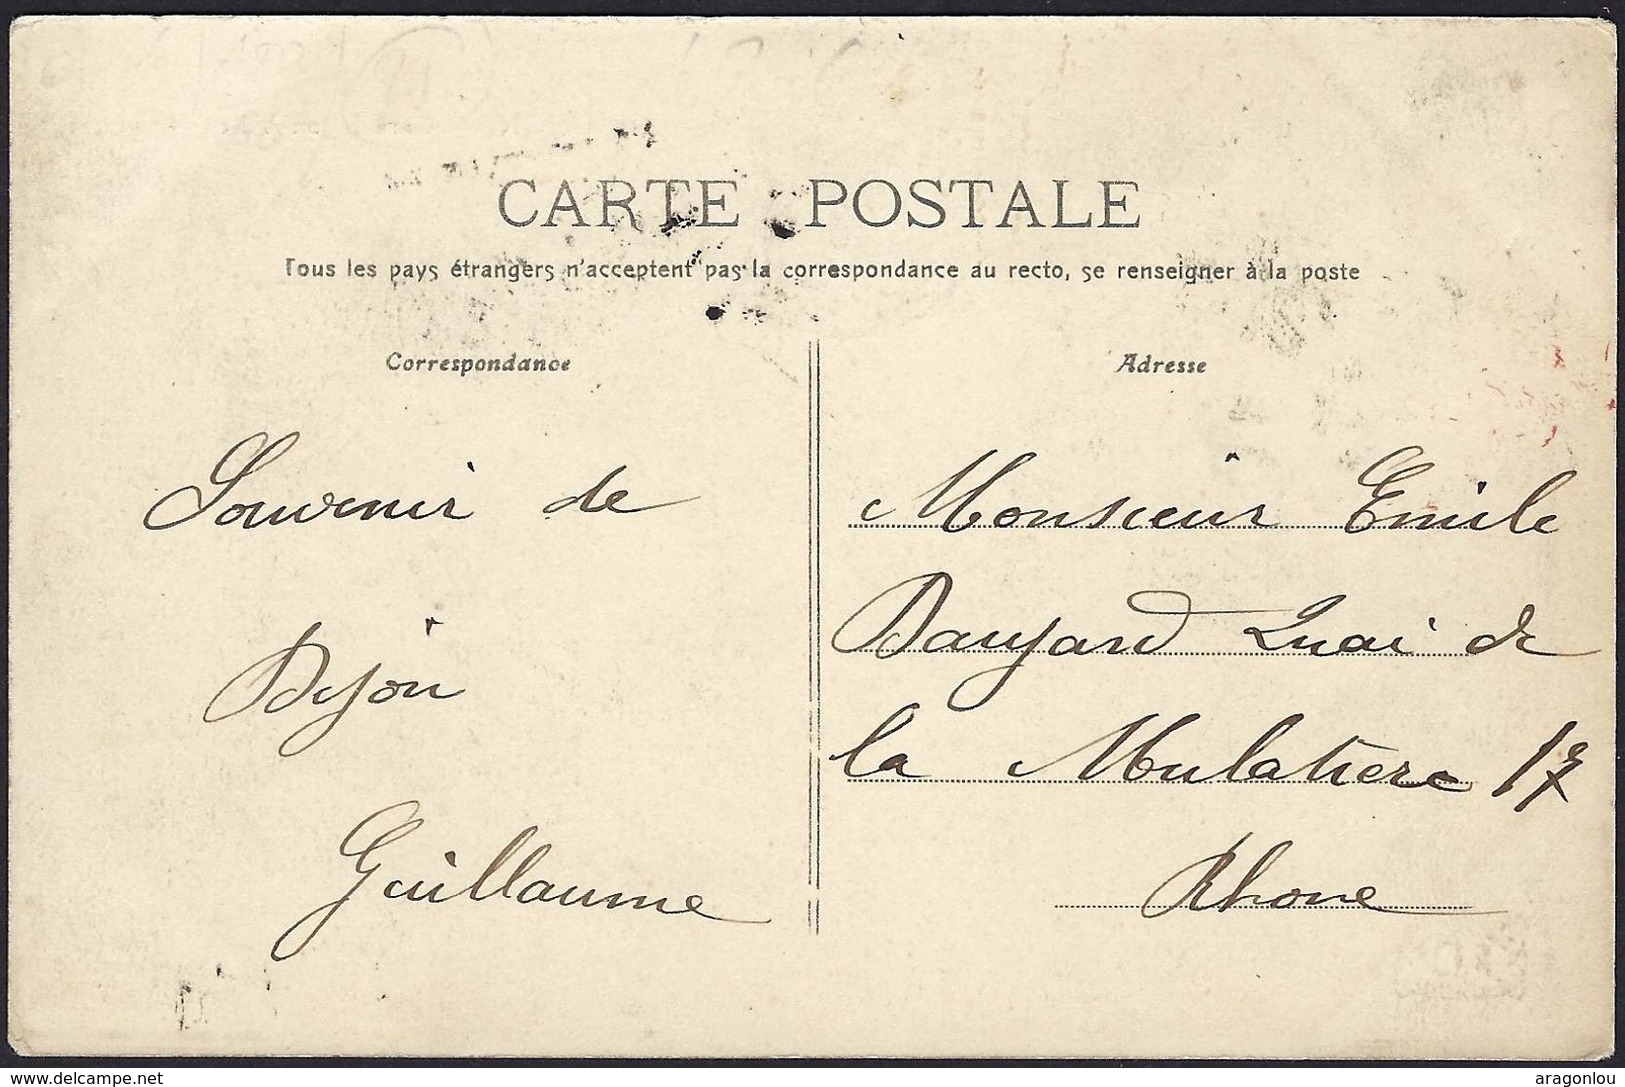 CARTE POSTALE
Tous les pays étrangers n'acceptent pas la correspondance au recto, se renseigner à la poste
Correspondance
Adresse
Souvenir de
Dijon
Guillaume
Monsieur Emile
Banyard Quai de
la Mulatiere 17
Rhone
delcampe.net
aragonlou